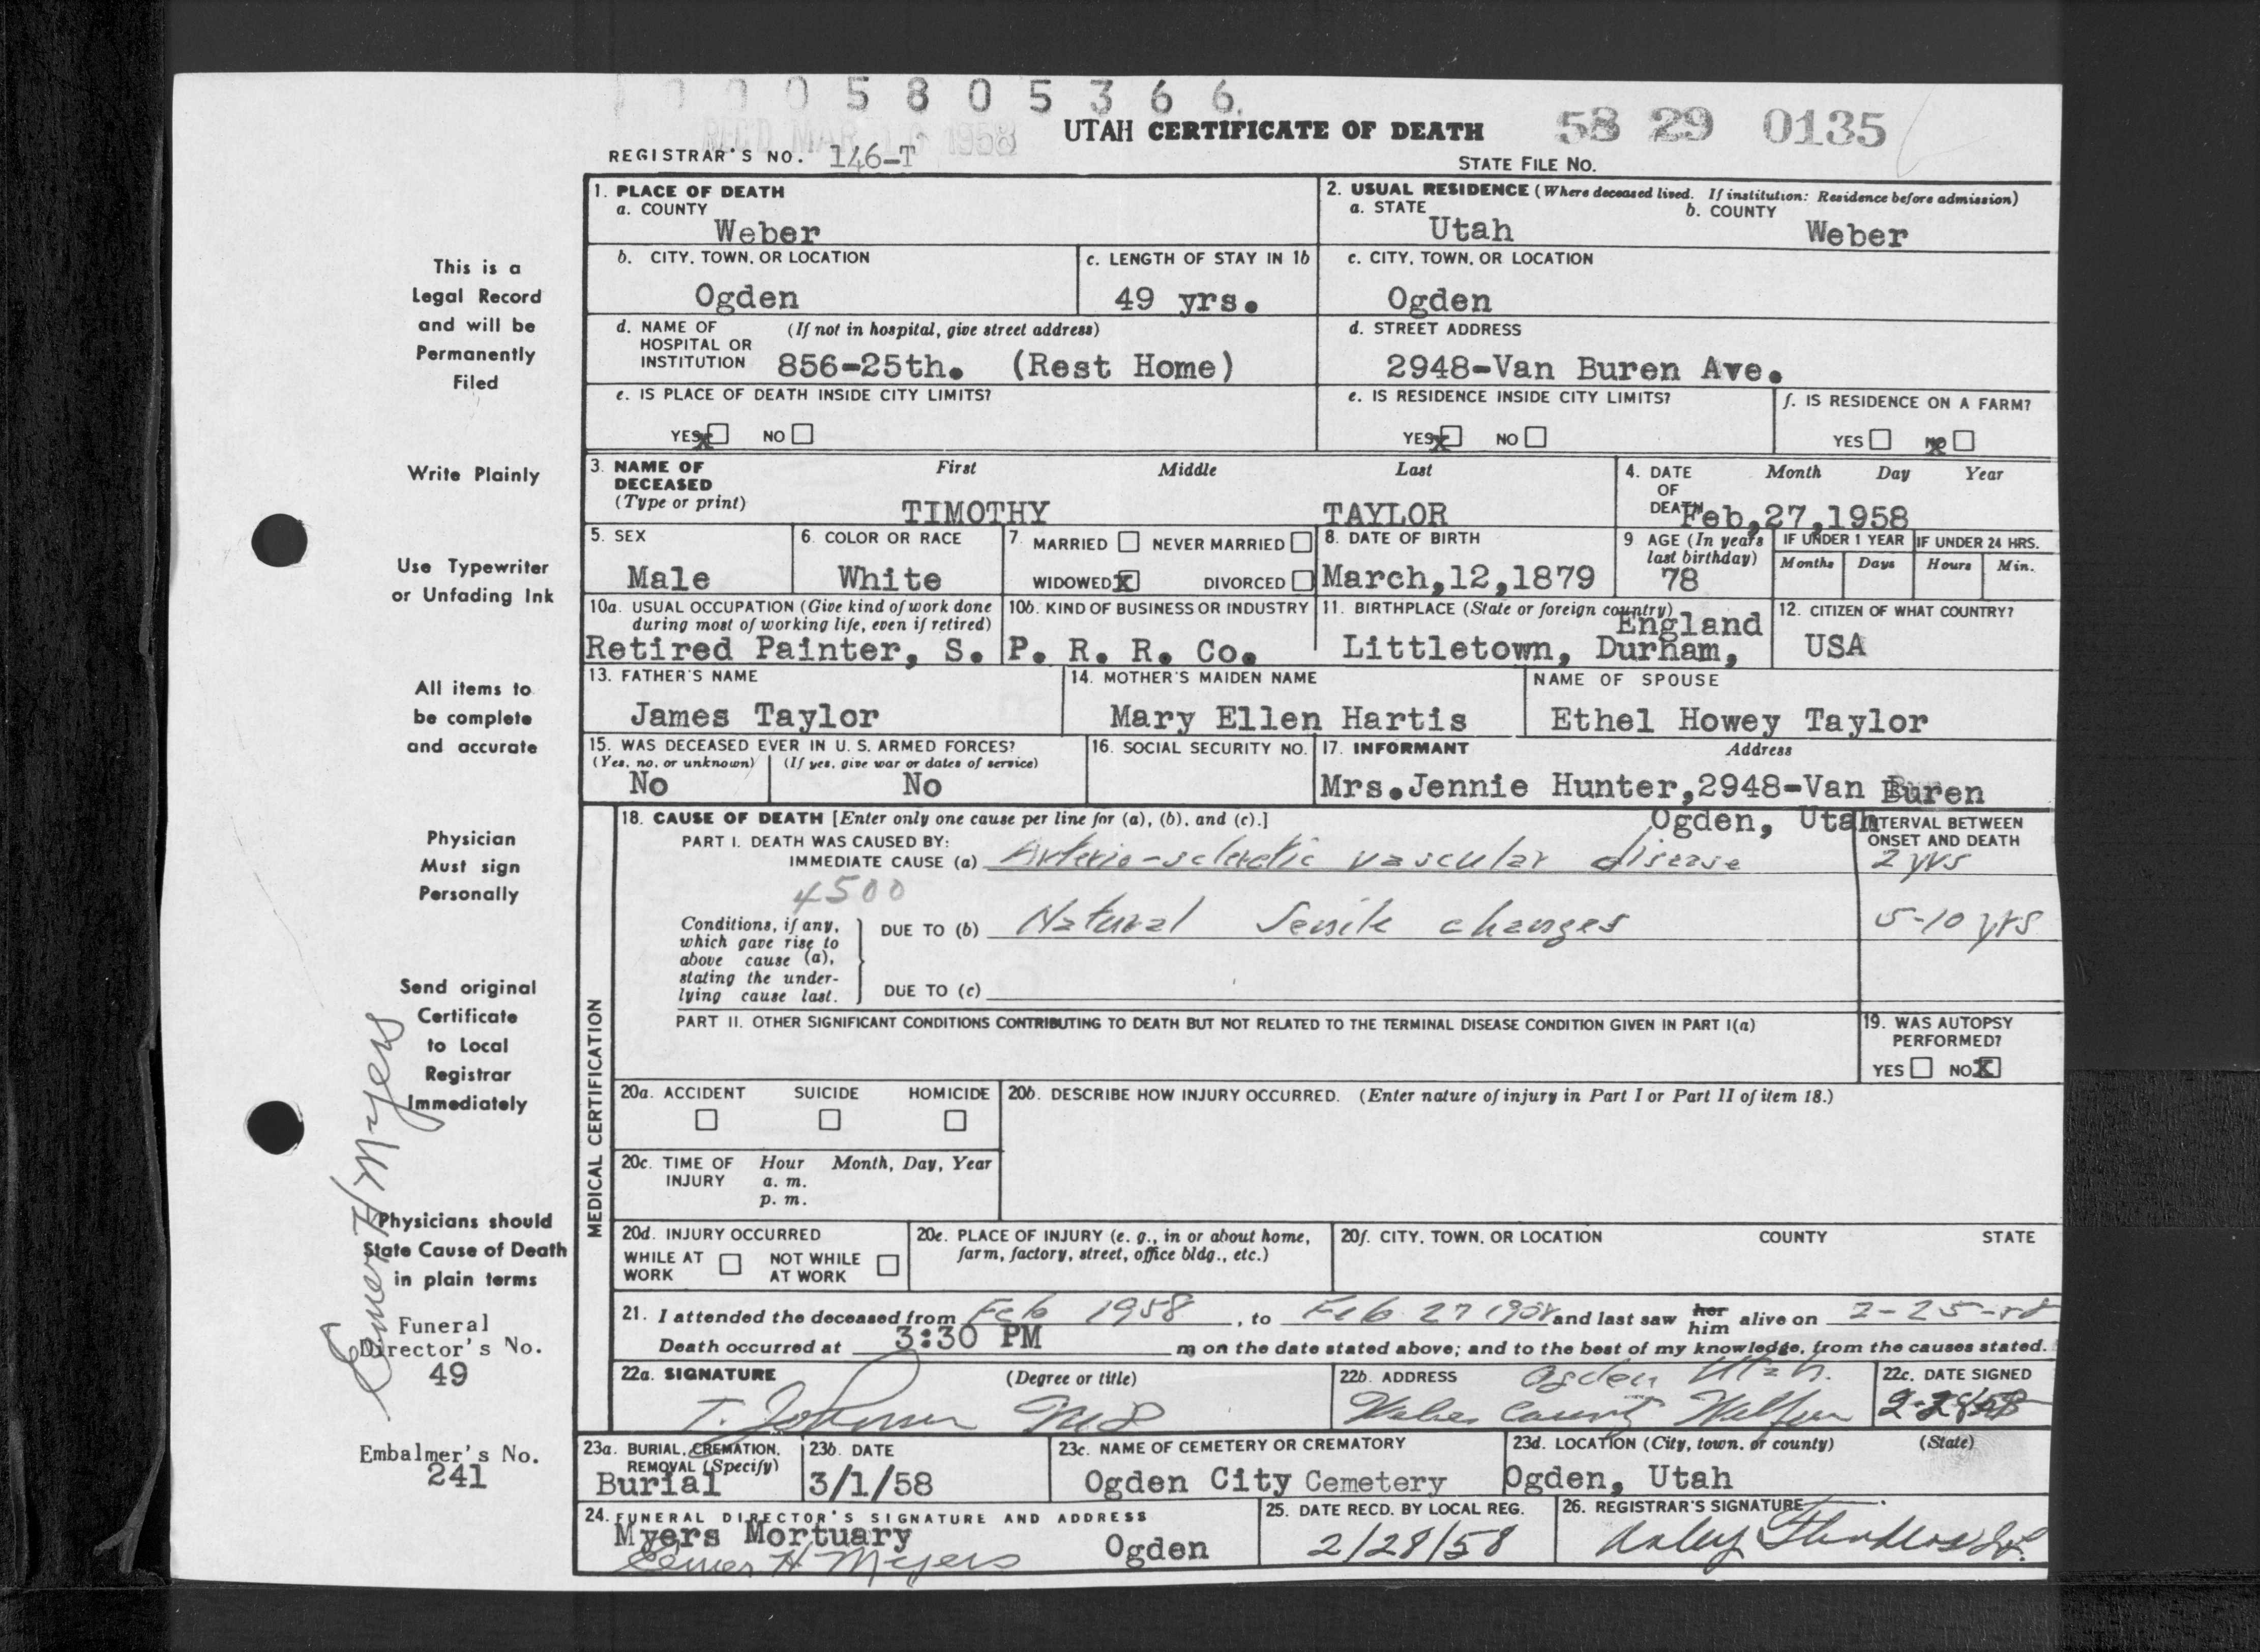 0 0 0 5 8 0 5 3 6 6
REC'D MAR 1958
UTAH CERTIFICATE OF DEATH
58 29 0135
REGISTRAR'S NO. 146-T
STATE FILE NO.
1. PLACE OF DEATH
a. COUNTY
Weber
2. USUAL RESIDENCE (Where deceased lived. If institution: Residence before admission)
a. STATE
Utah
b. COUNTY
Weber
b. CITY, TOWN, OR LOCATION
Ogden
c. LENGTH OF STAY IN 1b
49 yrs.
c. CITY, TOWN, OR LOCATION
Ogden
d. NAME OF HOSPITAL OR INSTITUTION
(If not in hospital, give street address)
856-25th. (Rest Home)
d. STREET ADDRESS
2948-Van Buren Ave.
e. IS PLACE OF DEATH INSIDE CITY LIMITS?
YES X NO
e. IS RESIDENCE INSIDE CITY LIMITS?
YES X NO
f. IS RESIDENCE ON A FARM?
YES NO X
3. NAME OF DECEASED
(Type or print)
First Middle Last
TIMOTHY TAYLOR
4. DATE OF DEATH
Month Day Year
Feb,27,1958
5. SEX
Male
6. COLOR OR RACE
White
7. MARRIED NEVER MARRIED
WIDOWED X DIVORCED
8. DATE OF BIRTH
March,12,1879
9 AGE (In years last birthday)
78
IF UNDER 1 YEAR
Months Days
IF UNDER 24 HRS.
Hours Min.
10a. USUAL OCCUPATION (Give kind of work done during most of working life, even if retired)
10b. KIND OF BUSINESS OR INDUSTRY
Retired Painter, S. P. R. R. Co.
11. BIRTHPLACE (State or foreign country)
England
Littletown, Durham,
12. CITIZEN OF WHAT COUNTRY?
USA
13. FATHER'S NAME
James Taylor
14. MOTHER'S MAIDEN NAME
Mary Ellen Hartis
NAME OF SPOUSE
Ethel Howey Taylor
15. WAS DECEASED EVER IN U. S. ARMED FORCES?
(Yes, no, or unknown) (If yes, give war or dates of service)
No No
16. SOCIAL SECURITY NO.
17. INFORMANT Address
Mrs.Jennie Hunter,2948-Van Buren
Ogden, Utah
18. CAUSE OF DEATH [Enter only one cause per line for (a), (b), and (c).]
INTERVAL BETWEEN ONSET AND DEATH
PART I. DEATH WAS CAUSED BY:
IMMEDIATE CAUSE (a) Arterio-sclerotic vascular disease 2 yrs
4500
Conditions, if any, which gave rise to above cause (a), stating the underlying cause last.
DUE TO (b) Natural Senile changes 5-10 yrs
DUE TO (c)
PART II. OTHER SIGNIFICANT CONDITIONS CONTRIBUTING TO DEATH BUT NOT RELATED TO THE TERMINAL DISEASE CONDITION GIVEN IN PART I(a)
19. WAS AUTOPSY PERFORMED?
YES NO X
MEDICAL CERTIFICATION
20a. ACCIDENT SUICIDE HOMICIDE
20b. DESCRIBE HOW INJURY OCCURRED. (Enter nature of injury in Part I or Part II of item 18.)
20c. TIME OF INJURY
Hour Month, Day, Year
a. m.
p. m.
20d. INJURY OCCURRED
WHILE AT WORK NOT WHILE AT WORK
20e. PLACE OF INJURY (e. g., in or about home, farm, factory, street, office bldg., etc.)
20f. CITY, TOWN, OR LOCATION COUNTY STATE
21. I attended the deceased from Feb 1958, to Feb 27 1958 and last saw her him alive on 2-25-58
Death occurred at 3:30 PM m on the date stated above; and to the best of my knowledge, from the causes stated.
22a. SIGNATURE (Degree or title)
T. Johnson MD
22b. ADDRESS
Ogden Utah.
Weber County Welfare
22c. DATE SIGNED
2-28-58
23a. BURIAL, CREMATION, REMOVAL (Specify)
Burial
23b. DATE
3/1/58
23c. NAME OF CEMETERY OR CREMATORY
Ogden City Cemetery
23d. LOCATION (City, town, or county) (State)
Ogden, Utah
24. FUNERAL DIRECTOR'S SIGNATURE AND ADDRESS
Myers Mortuary
Elmer H Myers
Ogden
25. DATE RECD. BY LOCAL REG.
2/28/58
26. REGISTRAR'S SIGNATURE
This is a
Legal Record
and will be
Permanently
Filed
Write Plainly
Use Typewriter
or Unfading Ink
All items to
be complete
and accurate
Physician
Must sign
Personally
Send original
Certificate
to Local
Registrar
Immediately
Physicians should
State Cause of Death
in plain terms
Funeral
Director's No.
49
Embalmer's No.
241
Elmer H Myers